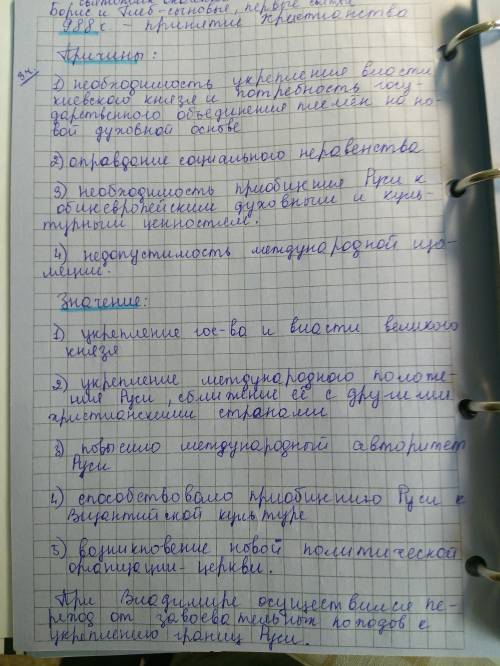 Борис и Глеб-сыновья, первые святые
988 г. - принятие Христианства
Причины:
1) необходимость укрепления власти
киевского князя и потребность госу-
дарственного объединения племён на но-
вой духовной основе
2) оправдание социального неравенства
3) необходимость приобщения Руси к
общеевропейским духовным и куль-
турным ценностям.
4) недопустимость международной изо-
ляции.
Значение:
1) укрепление гос-ва и власти великого
князя
2) укрепление международного положе-
ния Руси, сближение её с другими
христианскими странами
3) повысило международный авторитет
Руси
4) способствовало приобщению Руси к
Византийской культуре
5) возникновение новой политической
организации - церкви.
При Владимире осуществился пе-
реход от завоевательных походов к
укреплению границ Руси.